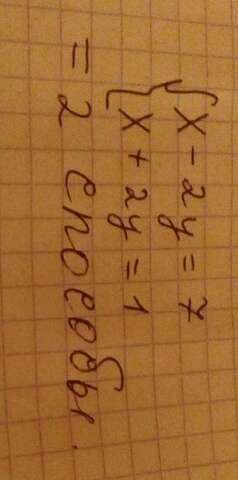 {x - 2y = 7
{x + 2y = 1
= 2 способы.